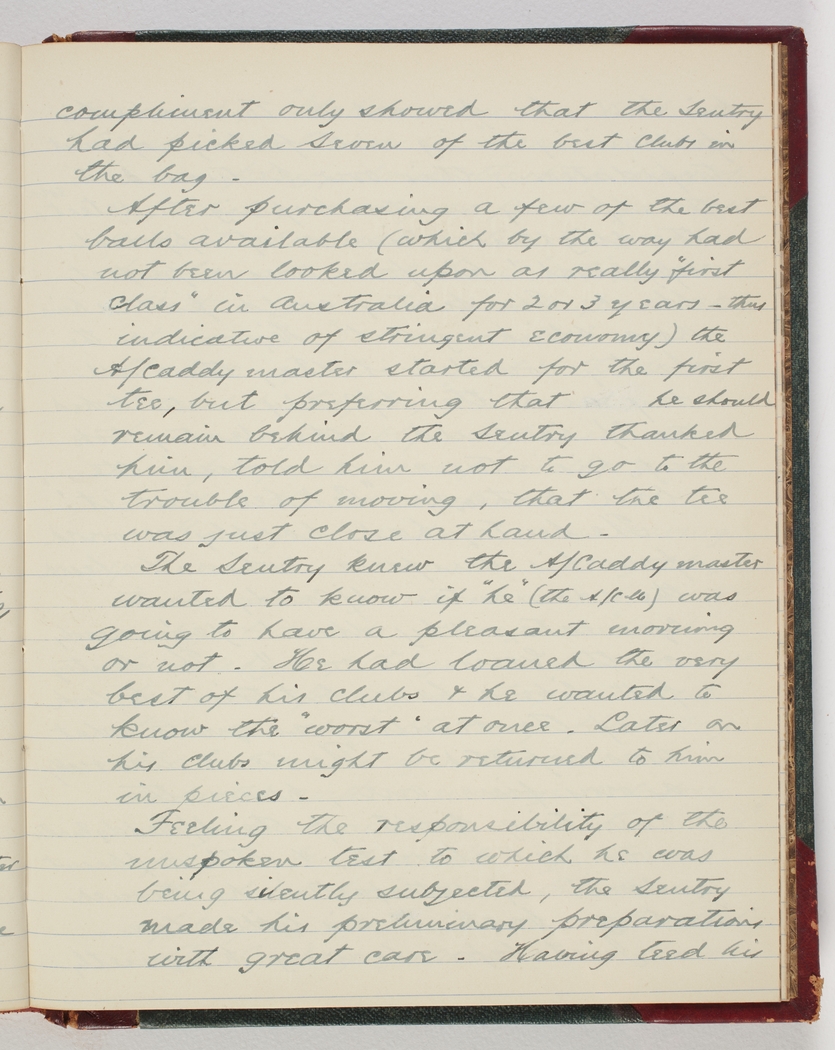 compliment only showed that the Sentry
had picked Seven of the best Clubs in
the bag -
After purchasing a few of the best
balls available (which by the way had
not been looked upon as really "first
Class" in Australia for 2 or 3 years - thus
indicative of stringent Economy) the
A/Caddy master started for the first
tee, but preferring that he should
remain behind the Sentry thanked
him, told him not to go to the
trouble of moving, that the tee
was just close at hand -
The Sentry knew the A/Caddy master
wanted to know if "he" (the A/C-M) was
going to have a pleasant morning
or not - He had loaned the very
best of his Clubs & he wanted to
know the "worst" at once. Later on
his Clubs might be returned to him
in pieces -
Feeling the responsibility of the
unspoken test to which he was
being silently subjected, the Sentry
made his preliminary preparations
with great care - Having teed his